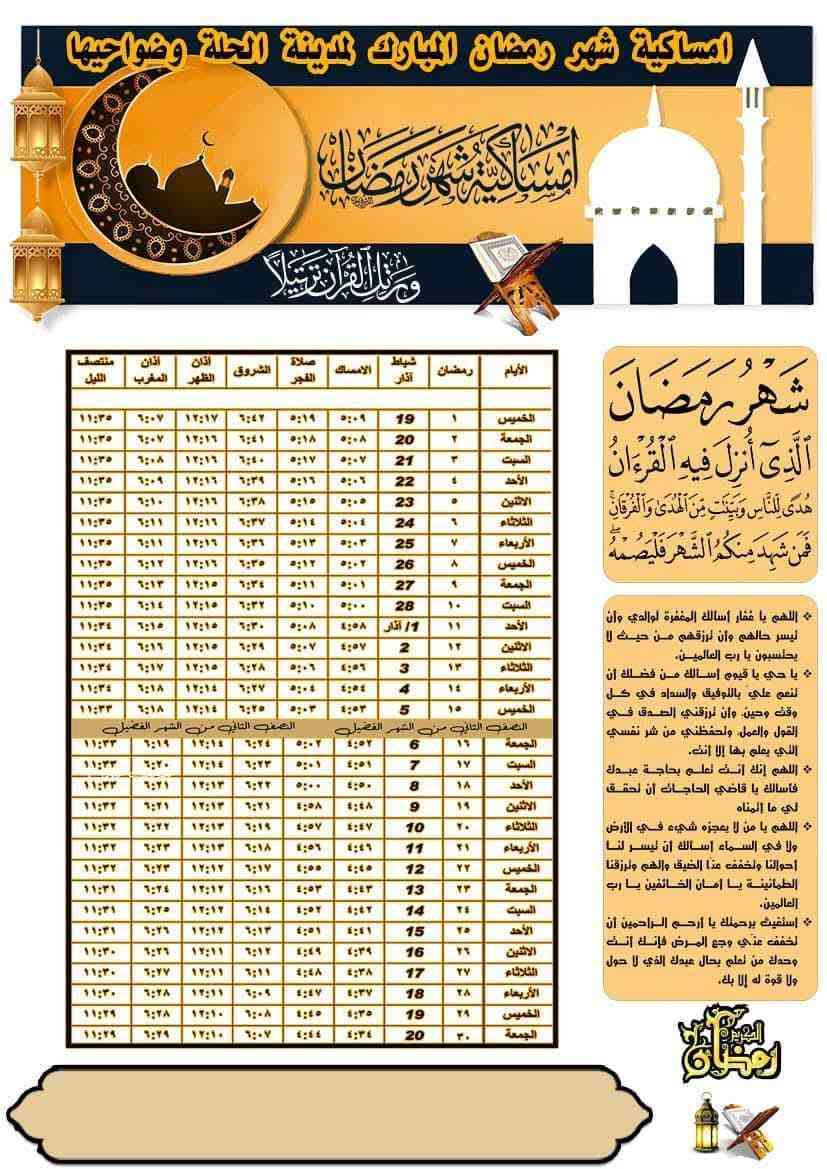 امساكية شهر رمضان المبارك لمدينة الحلة وضواحيها
امساكية شهر رمضان
ورتل القرآن ترتيلاً
الأيام رمضان شباط آذار الامساك صلاة الفجر الشروق أذان الظهر أذان المغرب منتصف الليل
الخميس ١ 19 ٥:٠٩ ٥:١٩ ٦:٤٢ ١٢:١٧ ٦:٠٧ ١١:٣٥
الجمعة ٢ 20 ٥:٠٨ ٥:١٨ ٦:٤١ ١٢:١٦ ٦:٠٧ ١١:٣٥
السبت ٣ 21 ٥:٠٧ ٥:١٧ ٦:٤٠ ١٢:١٦ ٦:٠٨ ١١:٣٥
الأحد ٤ 22 ٥:٠٦ ٥:١٦ ٦:٣٩ ١٢:١٦ ٦:٠٩ ١١:٣٥
الاثنين ٥ 23 ٥:٠٥ ٥:١٥ ٦:٣٨ ١٢:١٦ ٦:١٠ ١١:٣٥
الثلاثاء ٦ 24 ٥:٠٤ ٥:١٤ ٦:٣٧ ١٢:١٦ ٦:١١ ١١:٣٥
الأربعاء ٧ 25 ٥:٠٣ ٥:١٣ ٦:٣٦ ١٢:١٦ ٦:١١ ١١:٣٥
الخميس ٨ 26 ٥:٠٢ ٥:١٢ ٦:٣٥ ١٢:١٦ ٦:١٢ ١١:٣٥
الجمعة ٩ 27 ٥:٠١ ٥:١١ ٦:٣٤ ١٢:١٥ ٦:١٣ ١١:٣٥
السبت ١٠ 28 ٥:٠٠ ٥:١٠ ٦:٣٢ ١٢:١٥ ٦:١٤ ١١:٣٥
الأحد ١١ 1/ آذار ٤:٥٨ ٥:٠٨ ٦:٣٠ ١٢:١٥ ٦:١٥ ١١:٣٤
الاثنين ١٢ 2 ٤:٥٧ ٥:٠٧ ٦:٢٩ ١٢:١٥ ٦:١٦ ١١:٣٤
الثلاثاء ١٣ 3 ٤:٥٦ ٥:٠٦ ٦:٢٨ ١٢:١٥ ٦:١٧ ١١:٣٤
الأربعاء ١٤ 4 ٤:٥٤ ٥:٠٤ ٦:٢٧ ١٢:١٤ ٦:١٨ ١١:٣٤
الخميس ١٥ 5 ٤:٥٣ ٥:٠٣ ٦:٢٥ ١٢:١٤ ٦:١٨ ١١:٣٣
النصف الثاني من الشهر الفضيل النصف الثاني من الشهر الفضيل
الجمعة ١٦ 6 ٤:٥٢ ٥:٠٢ ٦:٢٤ ١٢:١٤ ٦:١٩ ١١:٣٣
السبت ١٧ 7 ٤:٥١ ٥:٠١ ٦:٢٣ ١٢:١٤ ٦:٢٠ ١١:٣٣
الأحد ١٨ 8 ٤:٥٠ ٥:٠٠ ٦:٢٢ ١٢:١٣ ٦:٢١ ١١:٣٣
الاثنين ١٩ 9 ٤:٤٨ ٤:٥٨ ٦:٢١ ١٢:١٣ ٦:٢١ ١١:٣٢
الثلاثاء ٢٠ 10 ٤:٤٧ ٤:٥٧ ٦:١٩ ١٢:١٣ ٦:٢٢ ١١:٣٢
الأربعاء ٢١ 11 ٤:٤٦ ٤:٥٦ ٦:١٨ ١٢:١٣ ٦:٢٣ ١١:٣٢
الخميس ٢٢ 12 ٤:٤٥ ٤:٥٥ ٦:١٧ ١٢:١٢ ٦:٢٣ ١١:٣٢
الجمعة ٢٣ 13 ٤:٤٣ ٤:٥٣ ٦:١٦ ١٢:١٢ ٦:٢٤ ١١:٣١
السبت ٢٤ 14 ٤:٤٢ ٤:٥٢ ٦:١٤ ١٢:١٢ ٦:٢٥ ١١:٣١
الأحد ٢٥ 15 ٤:٤١ ٤:٥١ ٦:١٣ ١٢:١٢ ٦:٢٦ ١١:٣١
الاثنين ٢٦ 16 ٤:٣٩ ٤:٤٩ ٦:١٢ ١٢:١١ ٦:٢٦ ١١:٣٠
الثلاثاء ٢٧ 17 ٤:٣٨ ٤:٤٨ ٦:١١ ١٢:١١ ٦:٢٧ ١١:٣٠
الأربعاء ٢٨ 18 ٤:٣٧ ٤:٤٧ ٦:٠٩ ١٢:١١ ٦:٢٨ ١١:٣٠
الخميس ٢٩ 19 ٤:٣٥ ٤:٤٥ ٦:٠٨ ١٢:١٠ ٦:٢٨ ١١:٢٩
الجمعة ٣٠ 20 ٤:٣٤ ٤:٤٤ ٦:٠٧ ١٢:١٠ ٦:٢٩ ١١:٢٩
شَهْرُ رَمَضَانَ
الَّذِىٓ أُنزِلَ فِيهِ الْقُرْءَانُ
هُدًى لِّلنَّاسِ وَبَيِّنَٰتٍ مِّنَ الْهُدَىٰ وَالْفُرْقَانِ
فَمَن شَهِدَ مِنكُمُ الشَّهْرَ فَلْيَصُمْهُ
اللهم يا غفار أسألك المغفرة لوالدي وأن
تيسر حالهم وأن ترزقهم من حيث لا
يحتسبون يا رب العالمين.
يا حي يا قيوم أسألك من فضلك أن
تنعم عليّ بالتوفيق والسداد في كل
وقت وحين، وأن ترزقني الصدق في
القول والعمل، وتحفظني من شر نفسي
التي يعلم بها إلا أنت.
اللهم إنك أنت تعلم بحاجة عبدك
فأسألك يا قاضي الحاجات أن تحقق
لي ما أتمناه
اللهم يا من لا يعجزه شيء في الأرض
ولا في السماء أسألك أن تيسر لنا
أحوالنا وتخفف عنا الضيق والهم وترزقنا
الطمأنينة يا أمان الخائفين يا رب
العالمين.
أستغيث برحمتك يا أرحم الراحمين أن
تخفف عني وجع المرض فإنك أنت
وحدك من تعلم بحال عبدك الذي لا حول
ولا قوة له إلا بك.
رمضان